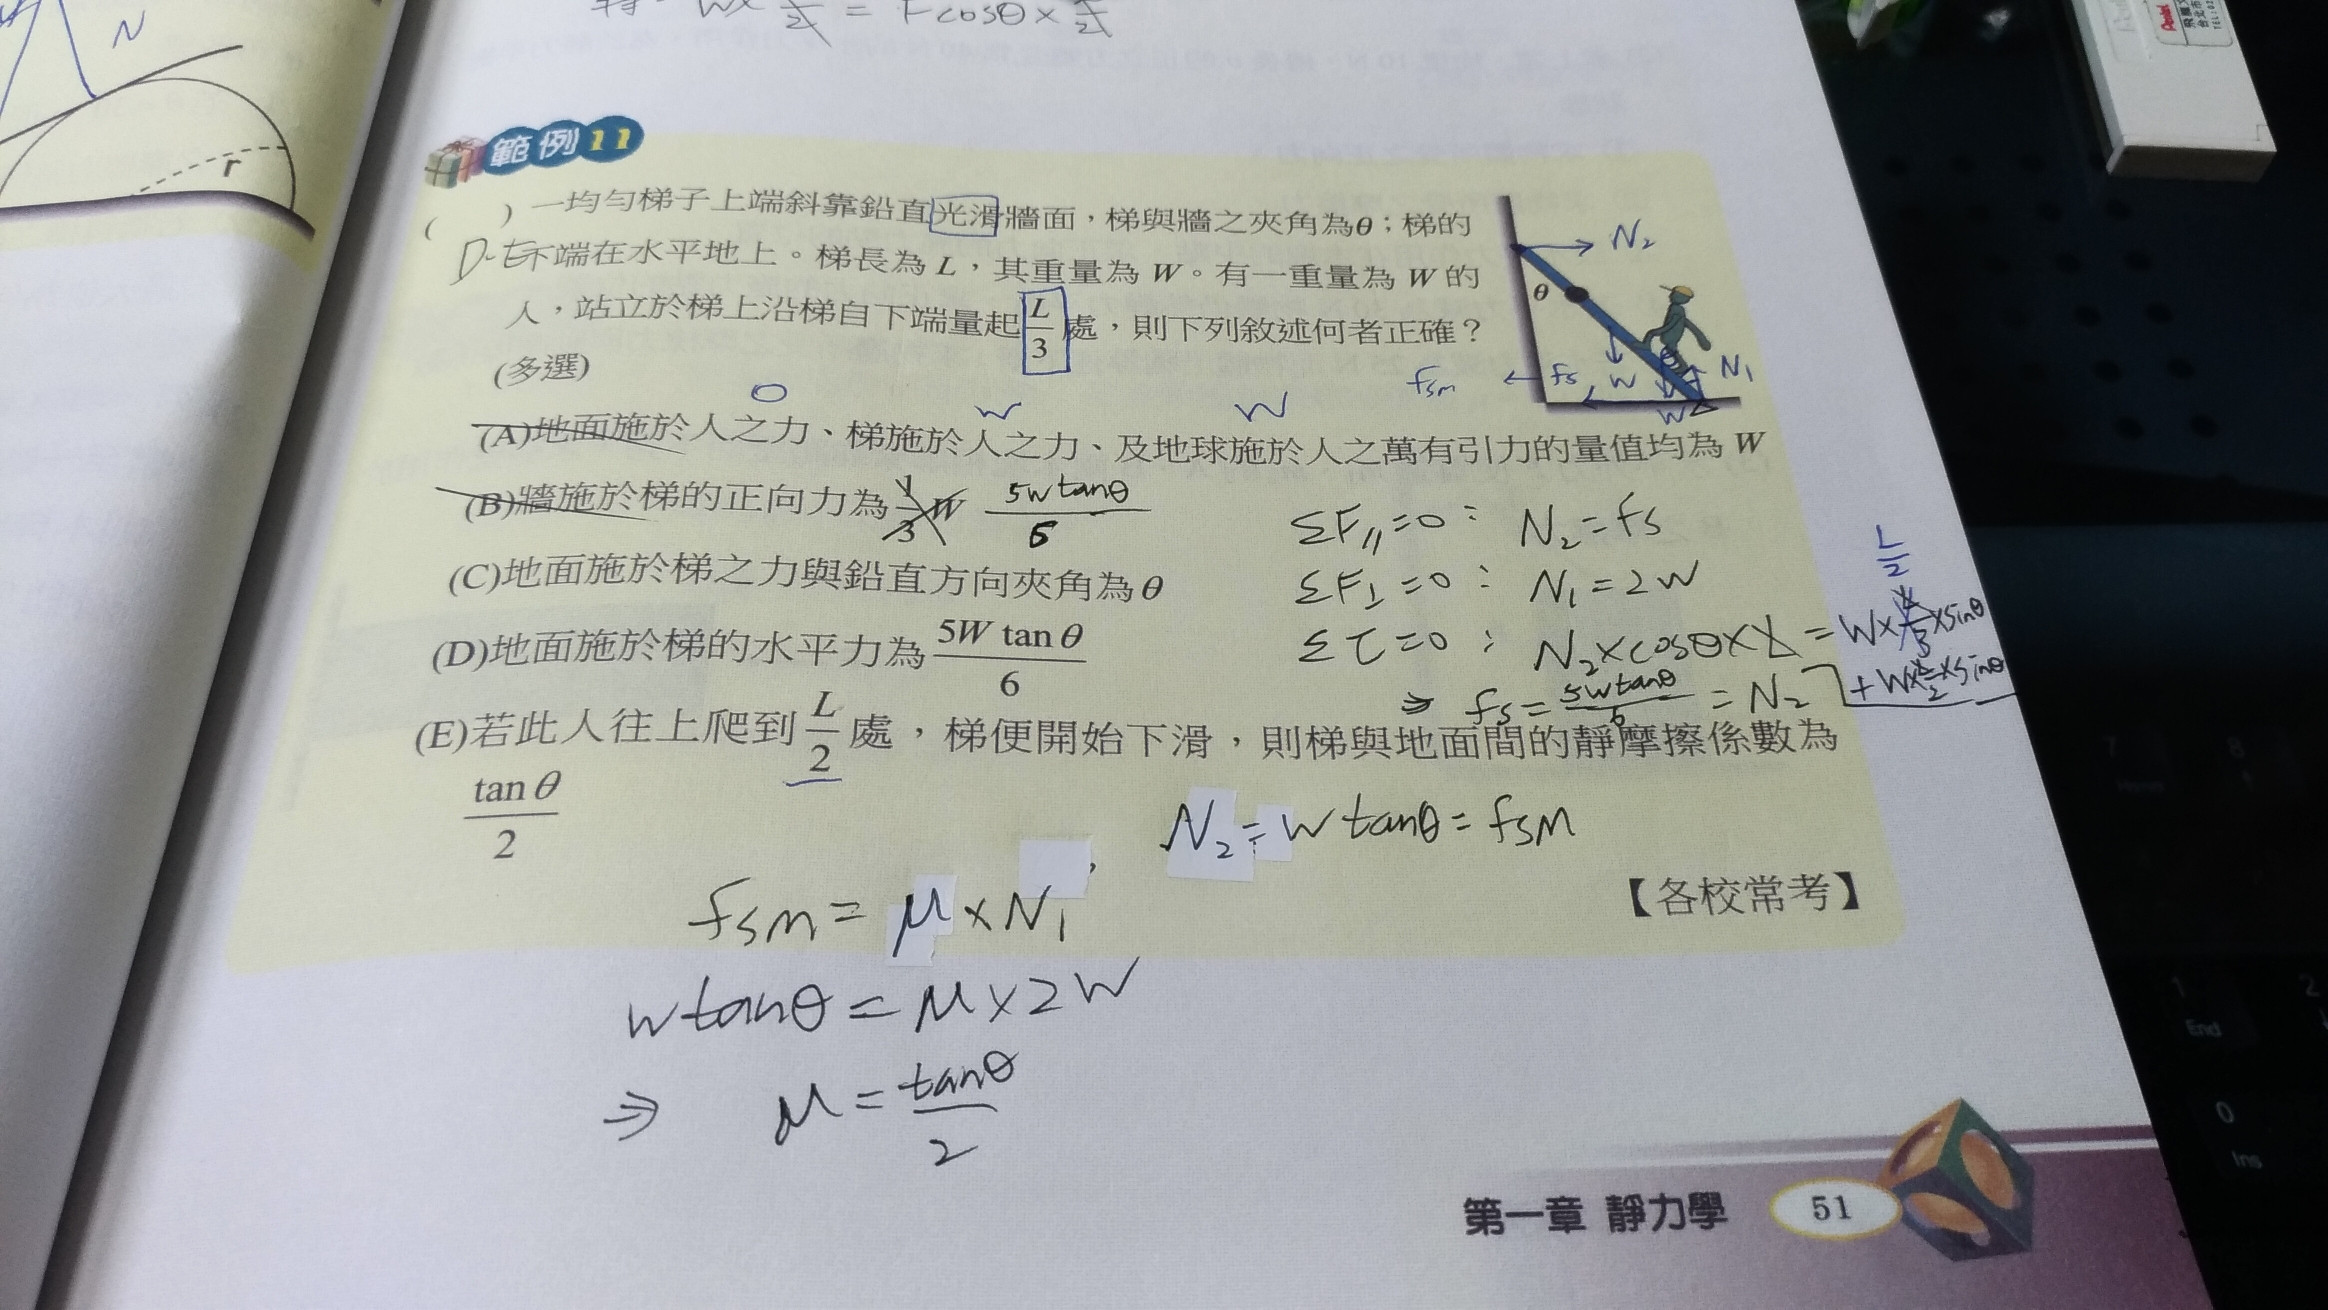 W× = Fcosθ×
N
r
範例11
( ) 一均勻梯子上端斜靠鉛直光滑牆面，梯與牆之夾角為θ；梯的
D.E
下端在水平地上。梯長為 L，其重量為 W。有一重量為 W 的
人，站立於梯上沿梯自下端量起 L/3 處，則下列敘述何者正確？
(多選)
N₂
θ
fsm
fs
W
N₁
W
0 W W
(A)地面施於人之力、梯施於人之力、及地球施於人之萬有引力的量值均為 W
(B)牆施於梯的正向力為 1/3 W 5Wtanθ/6
(C)地面施於梯之力與鉛直方向夾角為 θ
(D)地面施於梯的水平力為 5W tan θ/6
(E)若此人往上爬到 L/2 處，梯便開始下滑，則梯與地面間的靜摩擦係數為
tan θ/2
ΣF∥=0： N₂=fs
ΣF⊥=0： N₁=2W
L/2
Στ=0： N₂×cosθ×L=W×L/3×sinθ
+W×L/2×sinθ
⇒ fs=5Wtanθ/6=N₂
N₂=Wtanθ=fsm
【各校常考】
fsm=μ×N₁
Wtanθ=μ×2W
⇒ μ=tanθ/2
第一章 靜力學 51
Pentel
7
8
1
End
2
0
Ins